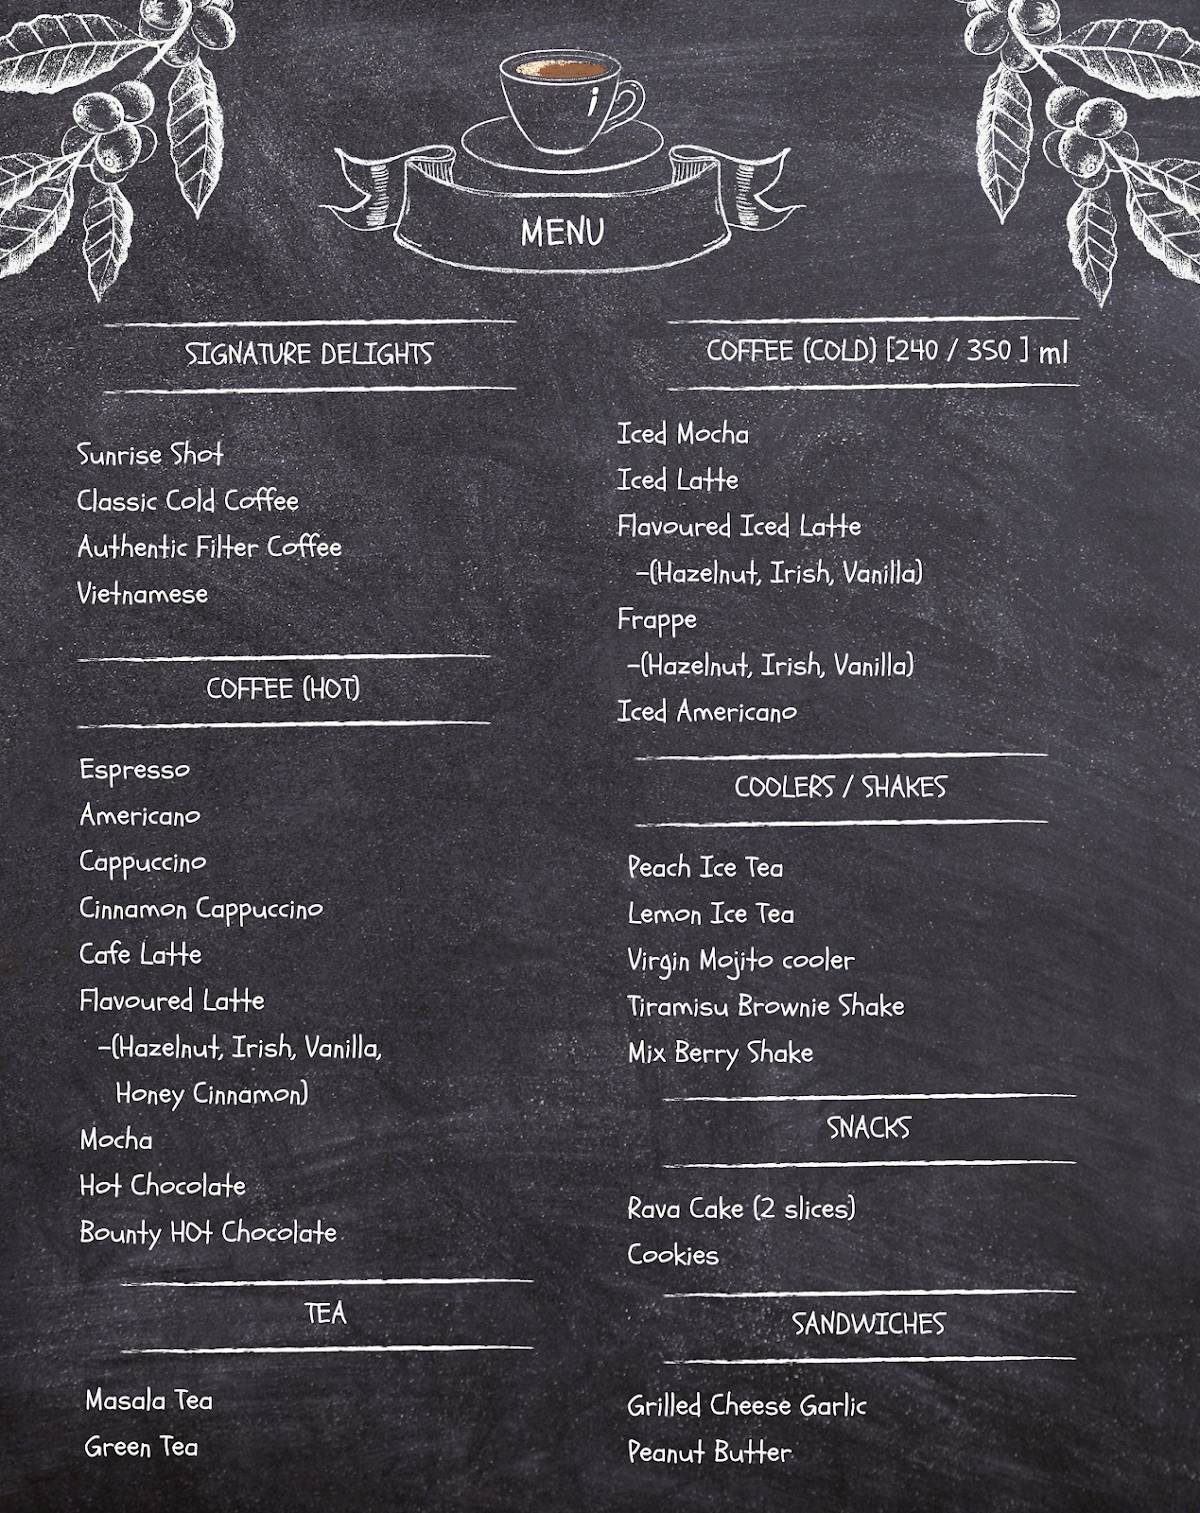 MENU
SIGNATURE DELIGHTS
Sunrise Shot
Classic Cold Coffee
Authentic Filter Coffee
Vietnamese
COFFEE (HOT)
Espresso
Americano
Cappuccino
Cinnamon Cappuccino
Cafe Latte
Flavoured Latte
-(Hazelnut, Irish, Vanilla,
Honey Cinnamon)
Mocha
Hot Chocolate
Bounty HOt Chocolate
TEA
Masala Tea
Green Tea
COFFEE (COLD) [240 / 350 ] ml
Iced Mocha
Iced Latte
Flavoured Iced Latte
-(Hazelnut, Irish, Vanilla)
Frappe
-(Hazelnut, Irish, Vanilla)
Iced Americano
COOLERS / SHAKES
Peach Ice Tea
Lemon Ice Tea
Virgin Mojito cooler
Tiramisu Brownie Shake
Mix Berry Shake
SNACKS
Rava Cake (2 slices)
Cookies
SANDWICHES
Grilled Cheese Garlic
Peanut Butter